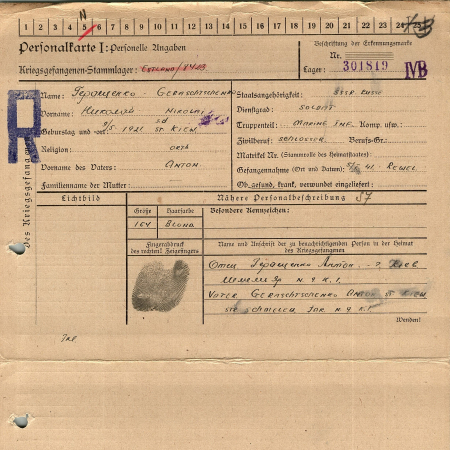 1 2 3 4 5 6 7 8 9 10 11 12 13 14 15 16 17 18 19 20 21 22 23 24 25
Personalkarte I: Personelle Angaben
Beschriftung der Erkennungsmarke
Nr. 301819
Kriegsgefangenen-Stammlager:
Lager: IVB
des Kriegsgefangenen
R
Name: Геращенко - Geraschtschenko
Staatsangehörigkeit:
Vorname: Николай Nikolai
Dienstgrad: Soldat
Geburtstag und -ort: 9/5 1921 st. Kiew
Truppenteil: Marine Inf. Komp. usw.
Religion: orth
Zivilberuf: Schlosser Berufs-Gr.
Matrikel Nr. (Stammrolle des Heimatstaates)
Vorname des Vaters: Anton
Gefangennahme (Ort und Datum) 41. Rewel
Familienname der Mutter:
Ob gesund, krank, verwundet eingeliefert:
Lichtbild
Nähere Personalbeschreibung
Größe Haarfarbe Besondere Kennzeichen:
164 Blond
Fingerabdruck des rechten! Zeigefingers
Name und Anschrift der zu benachrichtigenden Person in der Heimat des Kriegsgefangenen
Отец Геращенко Антон г. Киев
N. 9 K. 1.
Vater Geraschtschenko Anton st Kiew
N. 9 K. 1
Wenden!